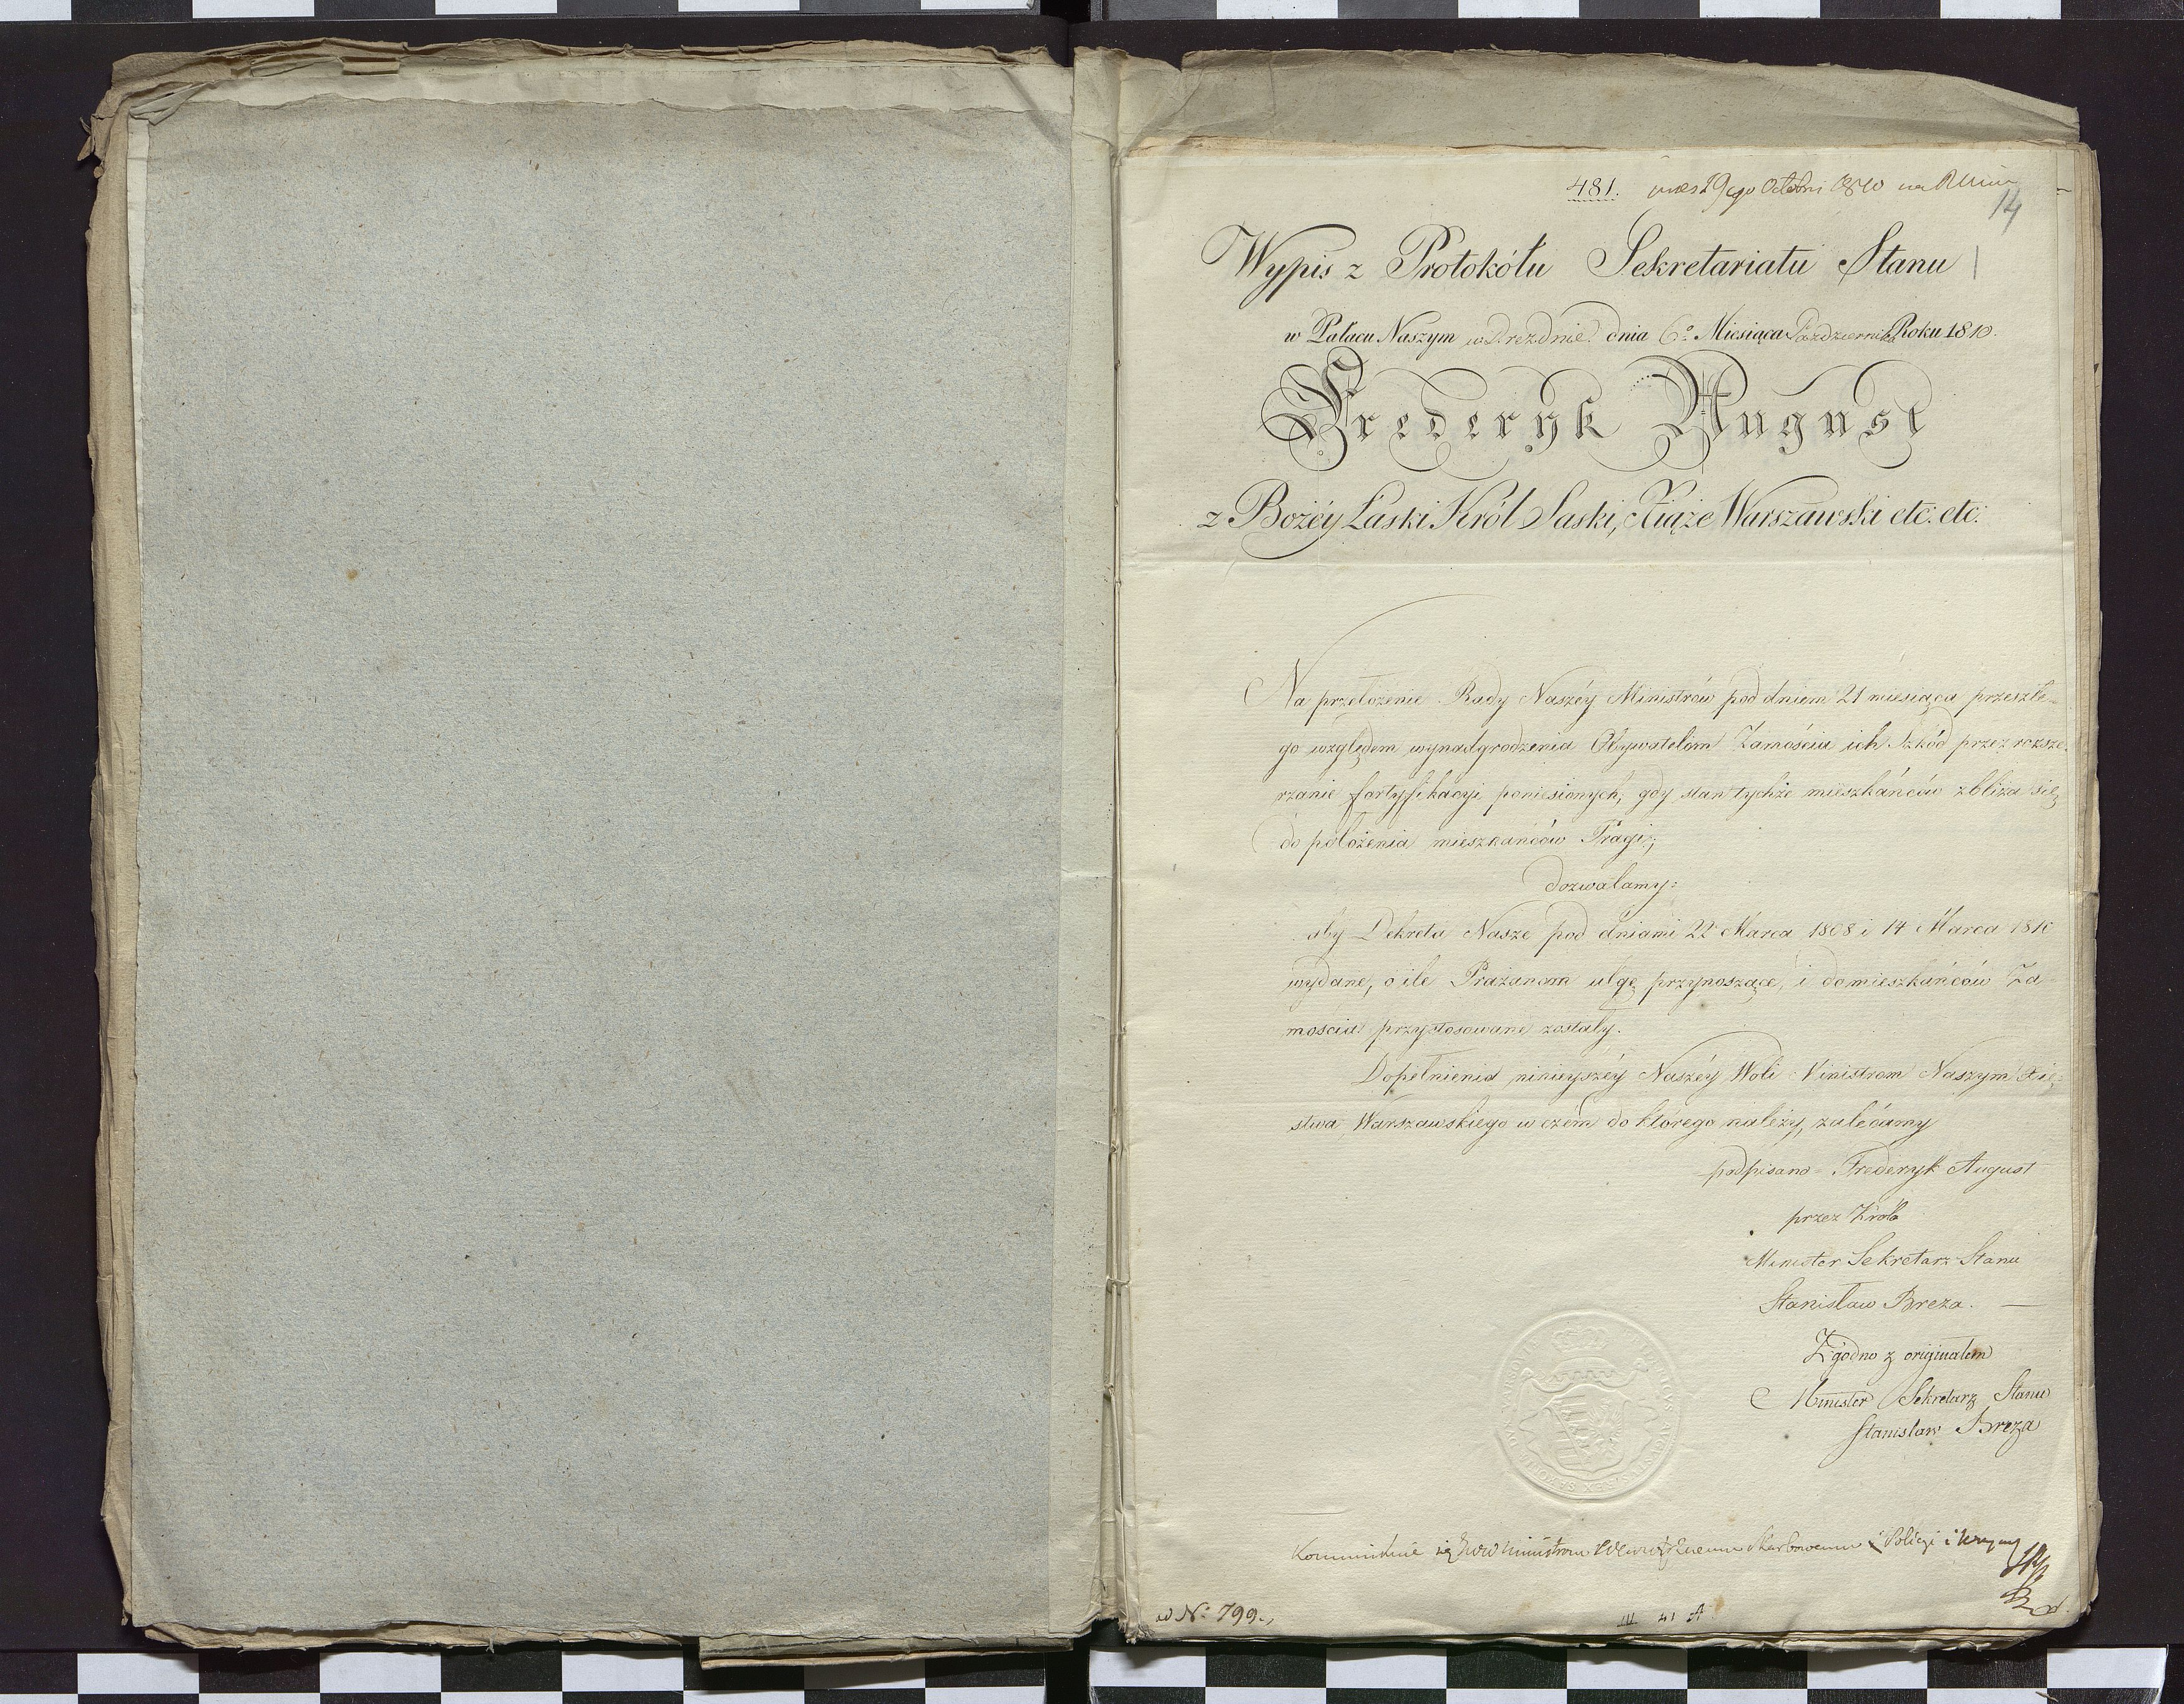 481. 19go Octobris 1810 na
14
Wypis z Protokółu Sekretariatu Stanu
w Pałacu Naszym w Dreznie dnia 6º Miesiąca Październik Roku 1810.
Frederyk August
z Bożéy Łaski Król Saski, Xiąże Warszawski etc. etc.
Na przełożenie Rady Naszéy Ministrów pod dniem 21 miesiąca przeszłe-
go względem wynadgrodzenia Obywatelom Zamościa ich Szkód przez rozsze-
rzanie fortyfikacyi poniesionych, gdy stan tychże mieszkańców zbliża się
do położenia mieszkańców Pragi;
dozwalamy:
aby Dekreta Nasze pod dniami 22 Marca 1808 i 14 Marca 1810
wydane, o ile Prażanom ulgę przynoszące, i do mieszkańców Za
mościa przystosowane zostały.
Dopełnienie ninieyszéy Naszéy Woli Ministrom Naszym Xię-
stwa Warszawskiego w czém do którego należy, zalecamy
podpisano Frederyk August
przez Króla
Minister Sekretarz Stanu
Stanisław Breza. —
Zgodno z oryginałem
Minister Sekretarz Stanu
Stanisław Breza
Kommunikuie się Ministrom Skarbowemu i Policyi i
ad Nº 799.,
III 41 A